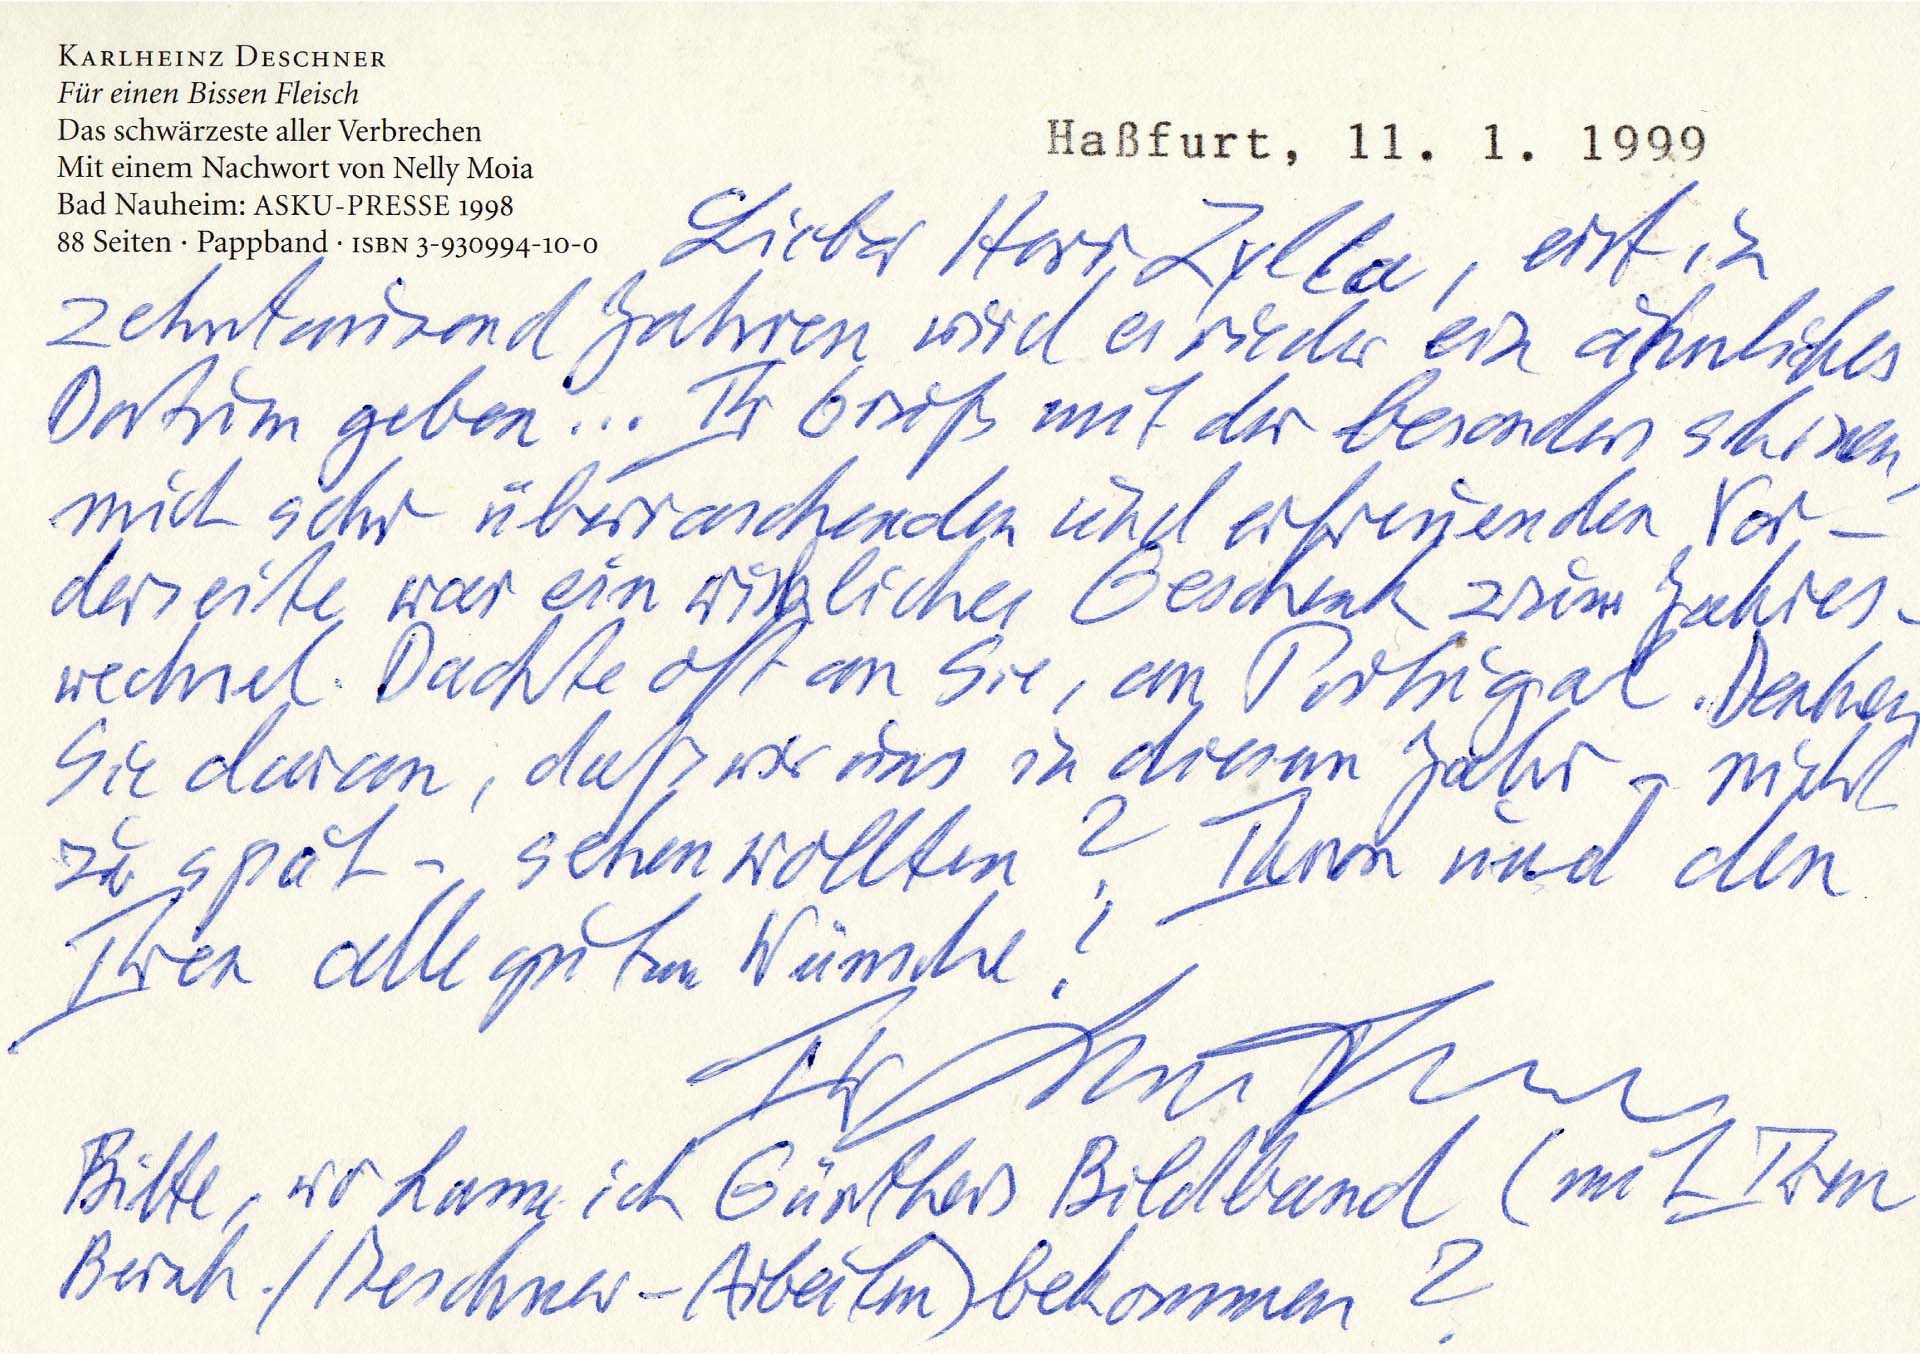 KARLHEINZ DESCHNER
Für einen Bissen Fleisch
Das schwärzeste aller Verbrechen
Mit einem Nachwort von Nelly Moia
Bad Nauheim: ASKU-PRESSE 1998
88 Seiten · Pappband · ISBN 3-930994-10-0
Haßfurt, 11. 1. 1999
Lieber Herr Zylla, erst in
zehntausend Jahren wird es wieder ein ähnliches
Datum geben... Ihr Gruß mit der besonders schönen,
mich sehr überraschenden und erfreuenden Vor-
derseite war ein wirkliches Geschenk zum Jahres-
wechsel. Dachte oft an Sie, an Portugal. Denken
Sie daran, daß wir uns in diesem Jahr - nicht
zu spät - sehen wollten? Ihnen und den
Ihren alle guten Wünsche!
Ihr
Bitte, wo kann ich Günthers Bildband (mit Ihren
/Deschner-Arbeiten) bekommen?